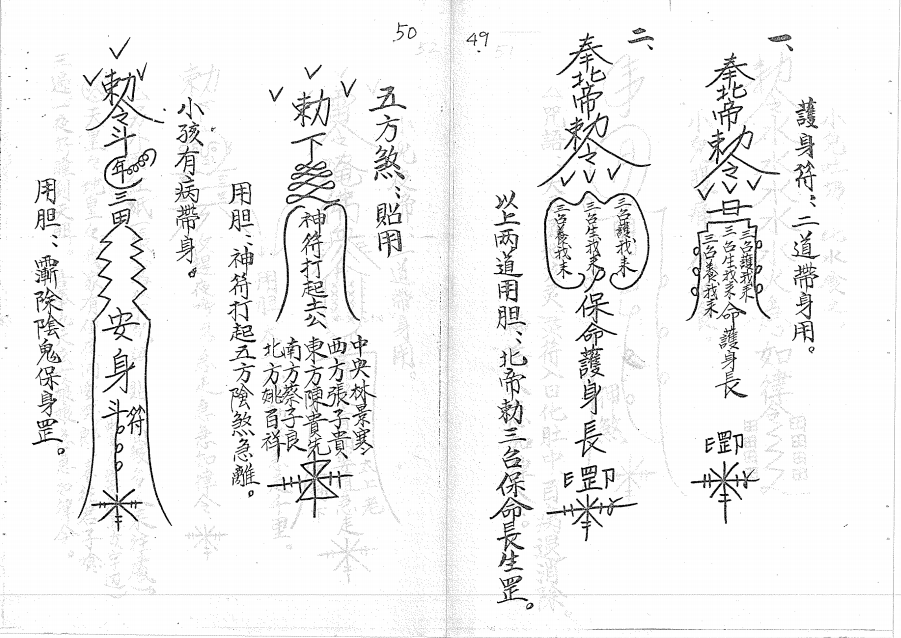 49
護身符：二道帶身用。
一、
奉北帝勅令
三台護我來
三台生我來
三台養我來
命護身長
二、
奉北帝勅令
三台護我來
三台生我來
三台養我來
保命護身長
以上両道用胆：北帝勅三台保命長生罡。
50
五方煞：貼用
勅下
神符打起土公
中央林景寒
西方張子貴
東方陳貴先
南方蔡子良
北方姚百祥
用胆：神符打起五方陰煞急離。
小孩有病帶身。
勅令斗
年
三田
安身
斗符
用胆：斬除陰鬼保身罡。